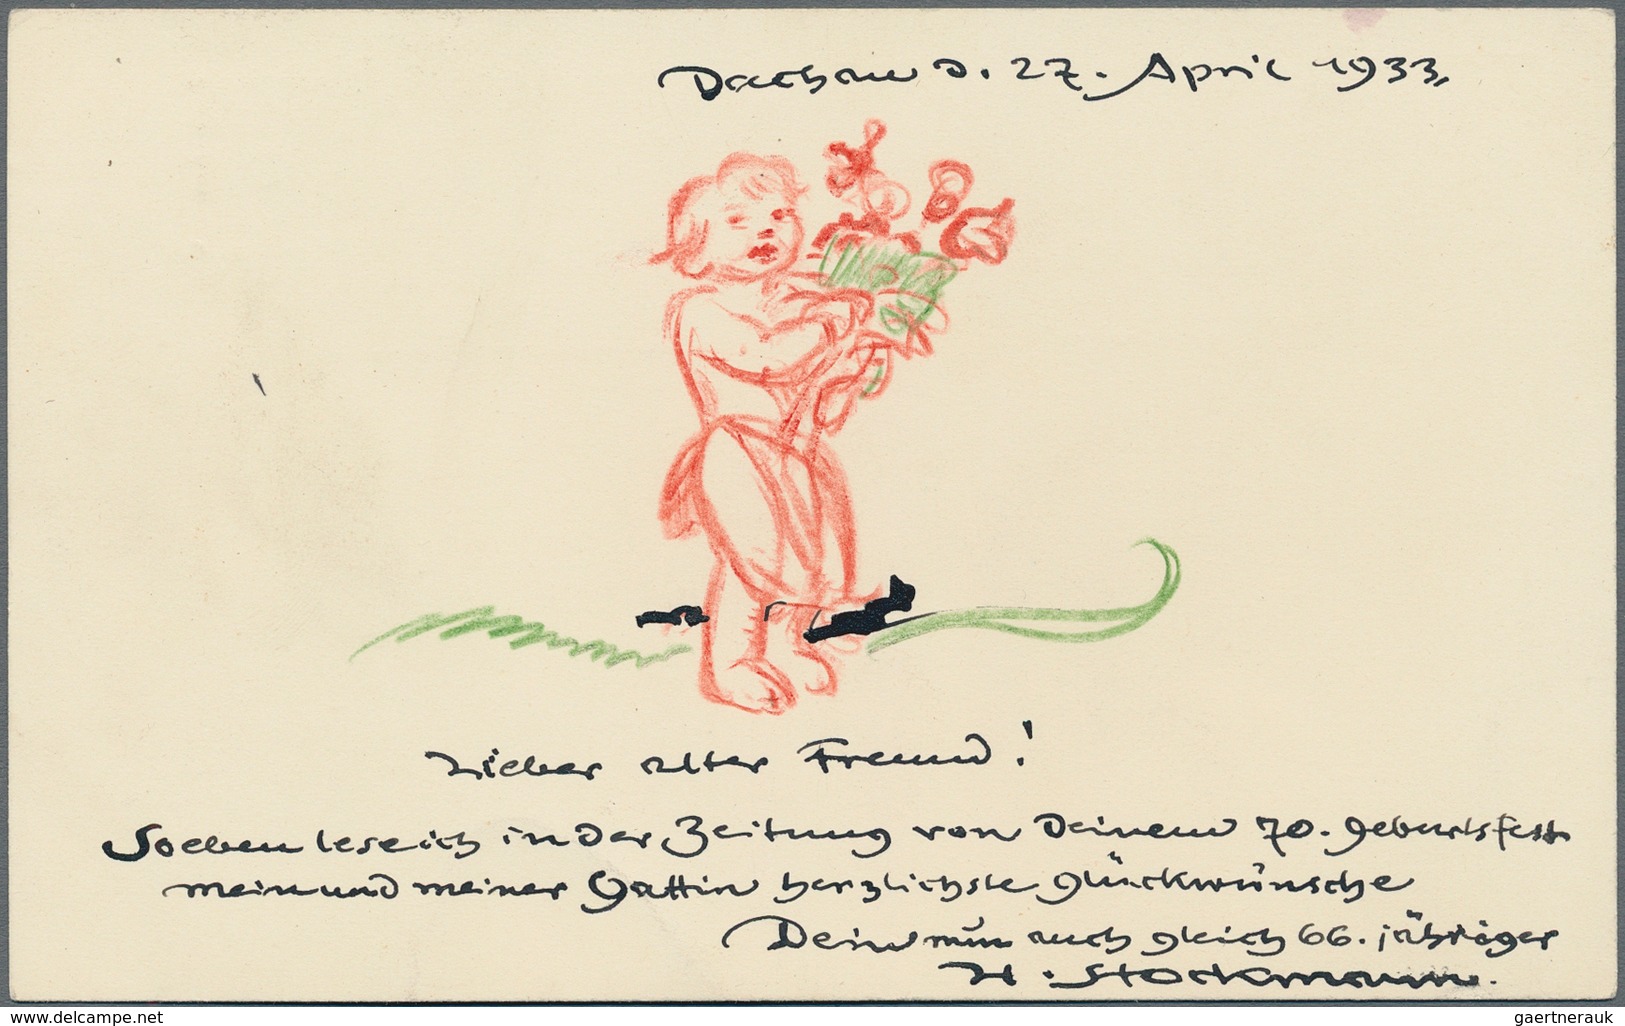 Dachau d. 27. April 1933.
Lieber alter Freund!
Soeben lese ich in der Zeitung von Deinem 70. Geburtsfest
mein und meiner Gattin herzlichste Glückwünsche
Dein nun auch gleich 66. jähriger
H. Stockmann.
www.delcampe.net
gaertnerauk